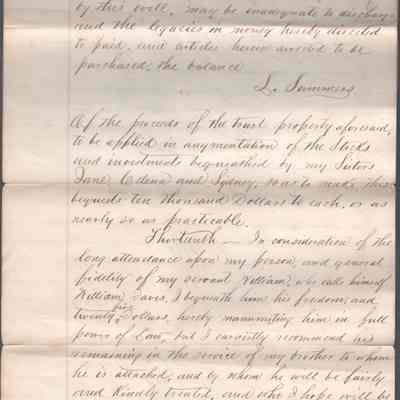 by this will, may be inadequate to discharge
and the legacies in money hereby directed
to paid, and articles herein directed to be
purchased; the balance
L. Summers
Of the proceeds of the trust property aforesaid,
to be applied in augmentation of the Stocks
and investments bequeathed by my Sisters
Jane, Celena and Sydney, so as to make this
bequests ten thousand Dollars to each, or as
nearly so as practicable.
Thirteenth — In consideration of the
long attendance upon my person, and general
fidelity of my servant William, who calls himself
William Davis, I bequeath him his freedom, and
twenty five Dollars, hereby manumitting him in full
power of Law, but I earnestly recommend his
remaining in the service of my brother to whom
he is attached, and by whom he will be fairly
and Kindly treated, and who I hope will be